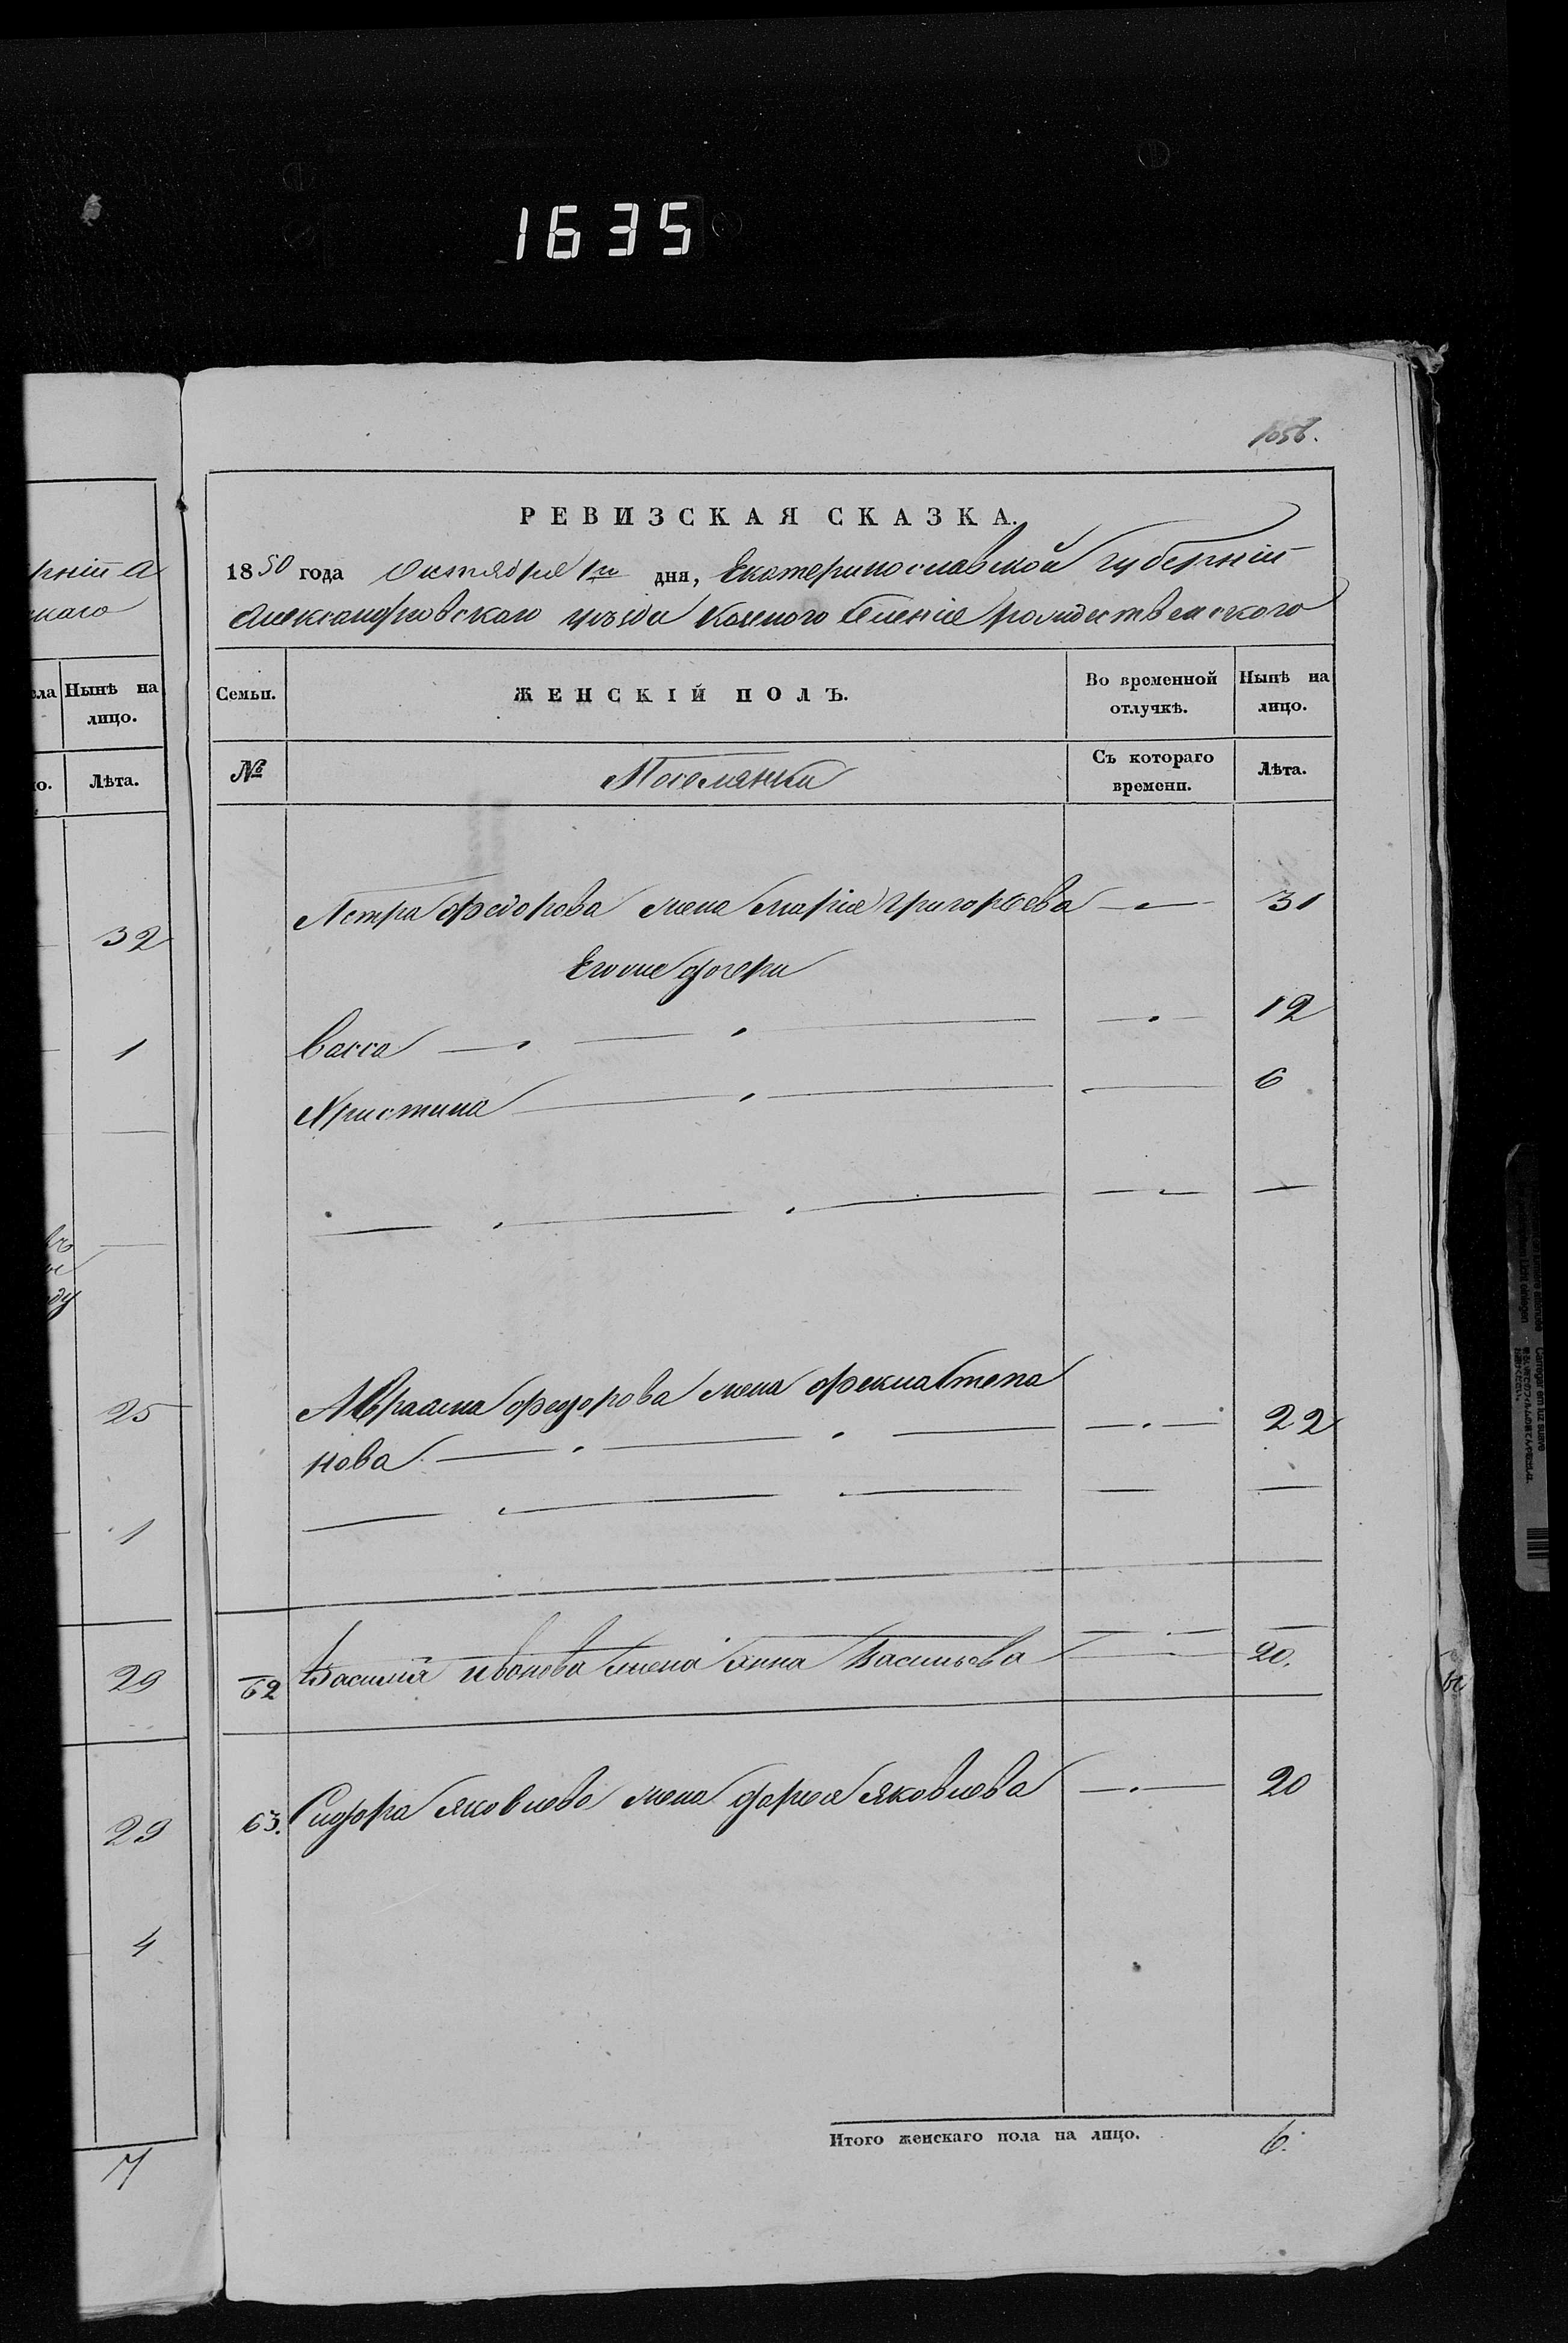 1635
1056.
рній А
скаго
Нынѣ на
лицо.
Лѣта.
32
1
25
1
29
29
4
7
РЕВИЗСКАЯ СКАЗКА.
1850 года Октября 1го дня, Екатеринославской губерній
Александровскаго уѣзда Селенія рождественского
Семьи. ЖЕНСКІЙ ПОЛЪ. Во временной отлучкѣ. Нынѣ на лицо.
№ Поселянки Съ котораго времени. Лѣта.
Петра федорова жена марія григорьева — 31
Егоже дочери
Васса — 12
Христина — 6
Авраама федорова жена фекла Степа
нова — 22
62 Василія иванова жена анна Васильева — 20.
63. Сидора яковлева жена дарья яковлева — 20
Итого женскаго пола на лицо. 6.